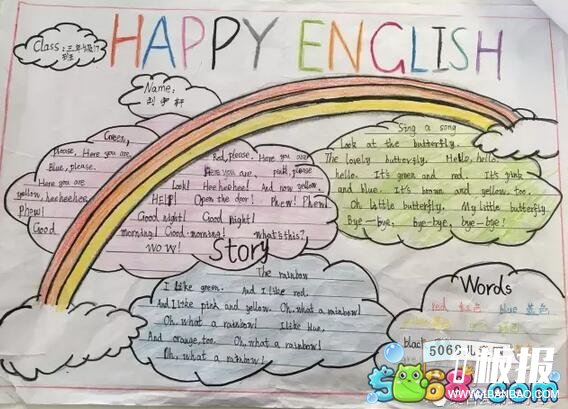 HAPPY ENGLISH
Class:三年级17
班
Name:
Green,
please. Here you are.
Blue, please.
Here you are
yellow, hee hee hee
Phew!
Good
Red, please. Here you are
Here you are. pink, please
Look! Hee hee hee! And now yellow.
HELP! Open the door! Phew! Phew!
Good night! Good night!
morning! Good morning! what's this?
WOW!
Sing a song
Look at the butterfly.
The lovely butterfly. Hello, hello,
hello. It's green and red. It's pink
and blue. It's brown and yellow, too.
Oh little butterfly. My little butterfly.
Bye-bye, bye-bye, bye-bye!
Story
The rainbow
I like green. And I like red.
And I like pink and yellow. Oh, what a rainbow!
Oh, what a rainbow! I like blue,
And orange, too. Oh, what a rainbow!
Oh, what a rainbow!
Words
red 红色 blue 蓝色
black
5068儿童网
板报
5068.com
WWW.1BANBAO.COM